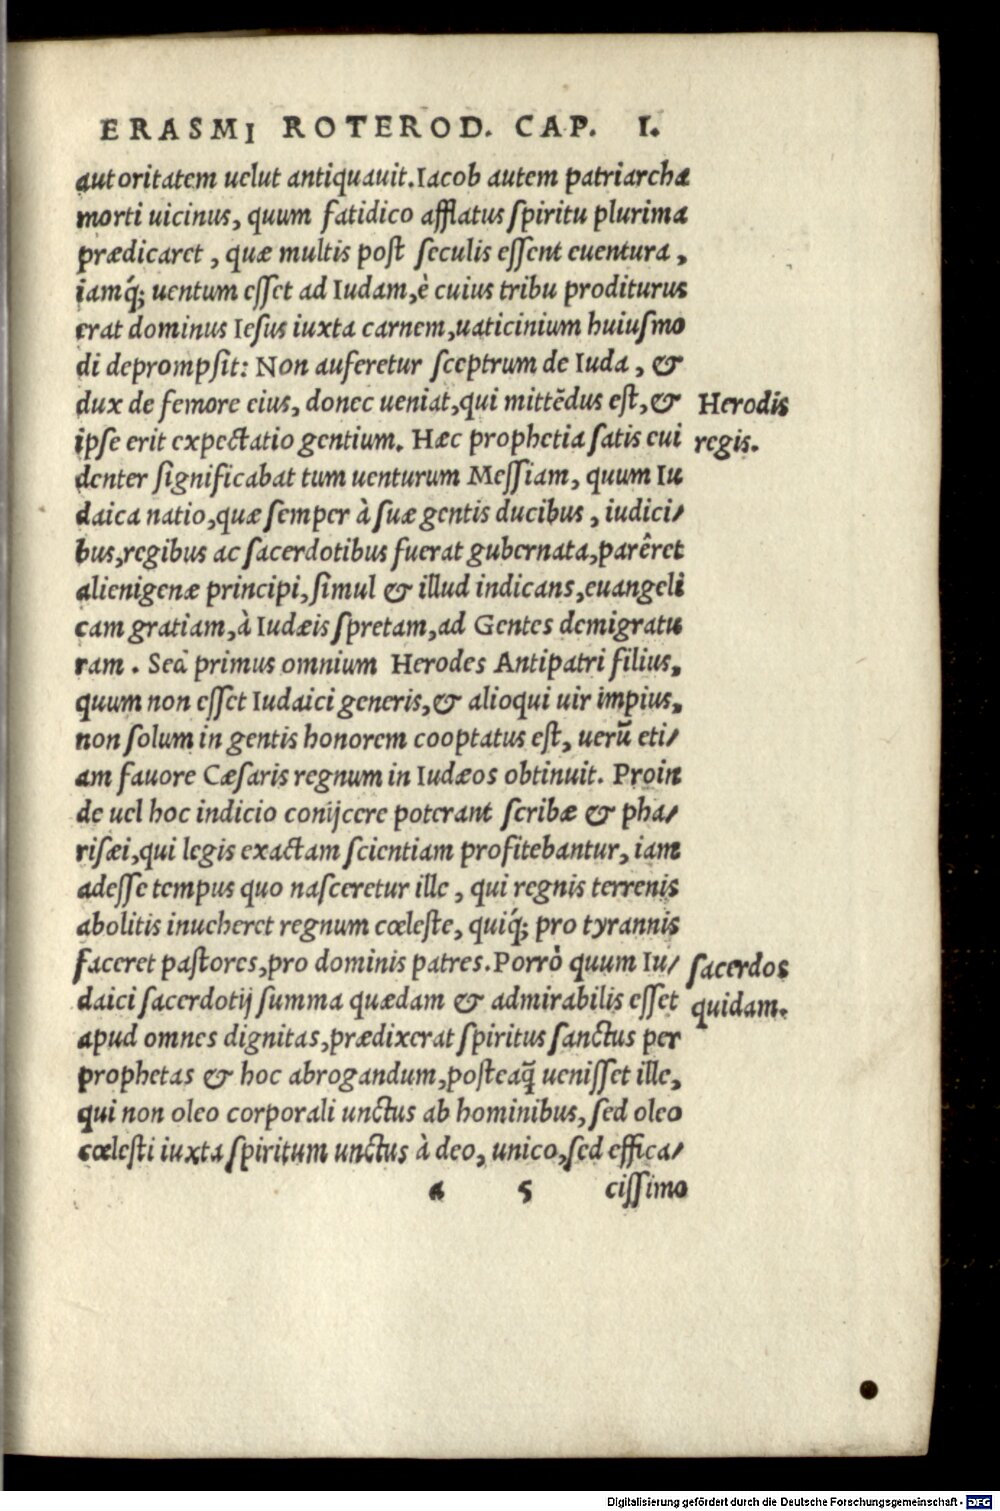 ERASMI ROTEROD. CAP. I.
autoritatem uelut antiquauit. Iacob autem patriarcha
morti uicinus, quum fatidico afflatus ſpiritu plurima
prædicaret, quæ multis poſt ſeculis eſſent euentura,
iamq́; uentum eſſet ad Iudam, è cuius tribu proditurus
erat dominus Ieſus iuxta carnem, uaticinium huiuſmo
di depromſit: Non auferetur ſceptrum de Iuda, &
dux de femore eius, donec ueniat, qui mittẽdus eſt, &
Herodis
ipſe erit expectatio gentium. Hæc prophetia ſatis eui
regis.
denter ſignificabat tum uenturum Meſſiam, quum Iu
daica natio, quæ ſemper à ſuæ gentis ducibus, iudici/
bus, regibus ac ſacerdotibus fuerat gubernata, parêret
alienigenæ principi, ſimul & illud indicans, euangeli
cam gratiam, à Iudæis ſpretam, ad Gentes demigratu
ram. Sed primus omnium Herodes Antipatri filius,
quum non eſſet Iudaici generis, & alioqui uir impius,
non ſolum in gentis honorem cooptatus eſt, uerũ eti/
am fauore Cæſaris regnum in Iudæos obtinuit. Proin
de uel hoc indicio conijcere poterant ſcribæ & pha/
riſæi, qui legis exactam ſcientiam profitebantur, iam
adeſſe tempus quo naſceretur ille, qui regnis terrenis
abolitis inueheret regnum cœleſte, quiq́; pro tyrannis
faceret paſtores, pro dominis patres. Porrò quum Iu/
ſacerdos
daici ſacerdotij ſumma quædam & admirabilis eſſet
quidam.
apud omnes dignitas, prædixerat ſpiritus ſanctus per
prophetas & hoc abrogandum, poſteaq̃ ueniſſet ille,
qui non oleo corporali unctus ab hominibus, ſed oleo
cœleſti iuxta ſpiritum unctus à deo, unico, ſed effica/
a 5 ciſſimo
Digitalisierung gefördert durch die Deutsche Forschungsgemeinschaft - DFG